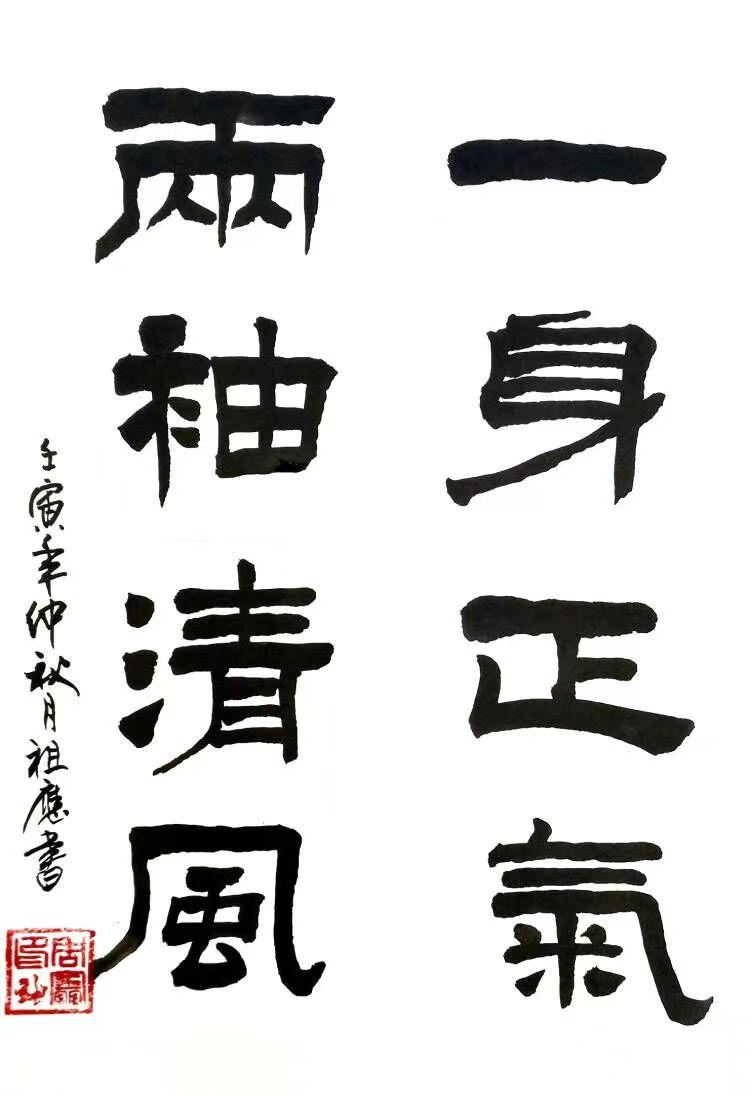 一身正氣
兩袖清風
壬寅年仲秋月祖應書